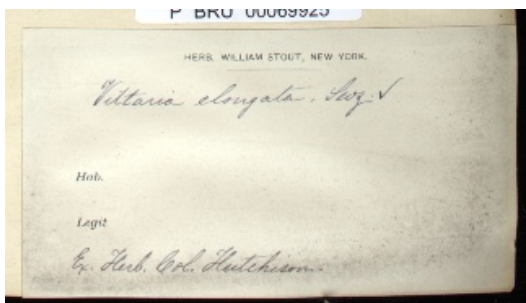 P BRU 00069925
HERB. WILLIAM STOUT, NEW YORK.
Vittaria elongata. Swz. ✓
Hab.
Legit
Ex. Herb. Col. Hutchison.